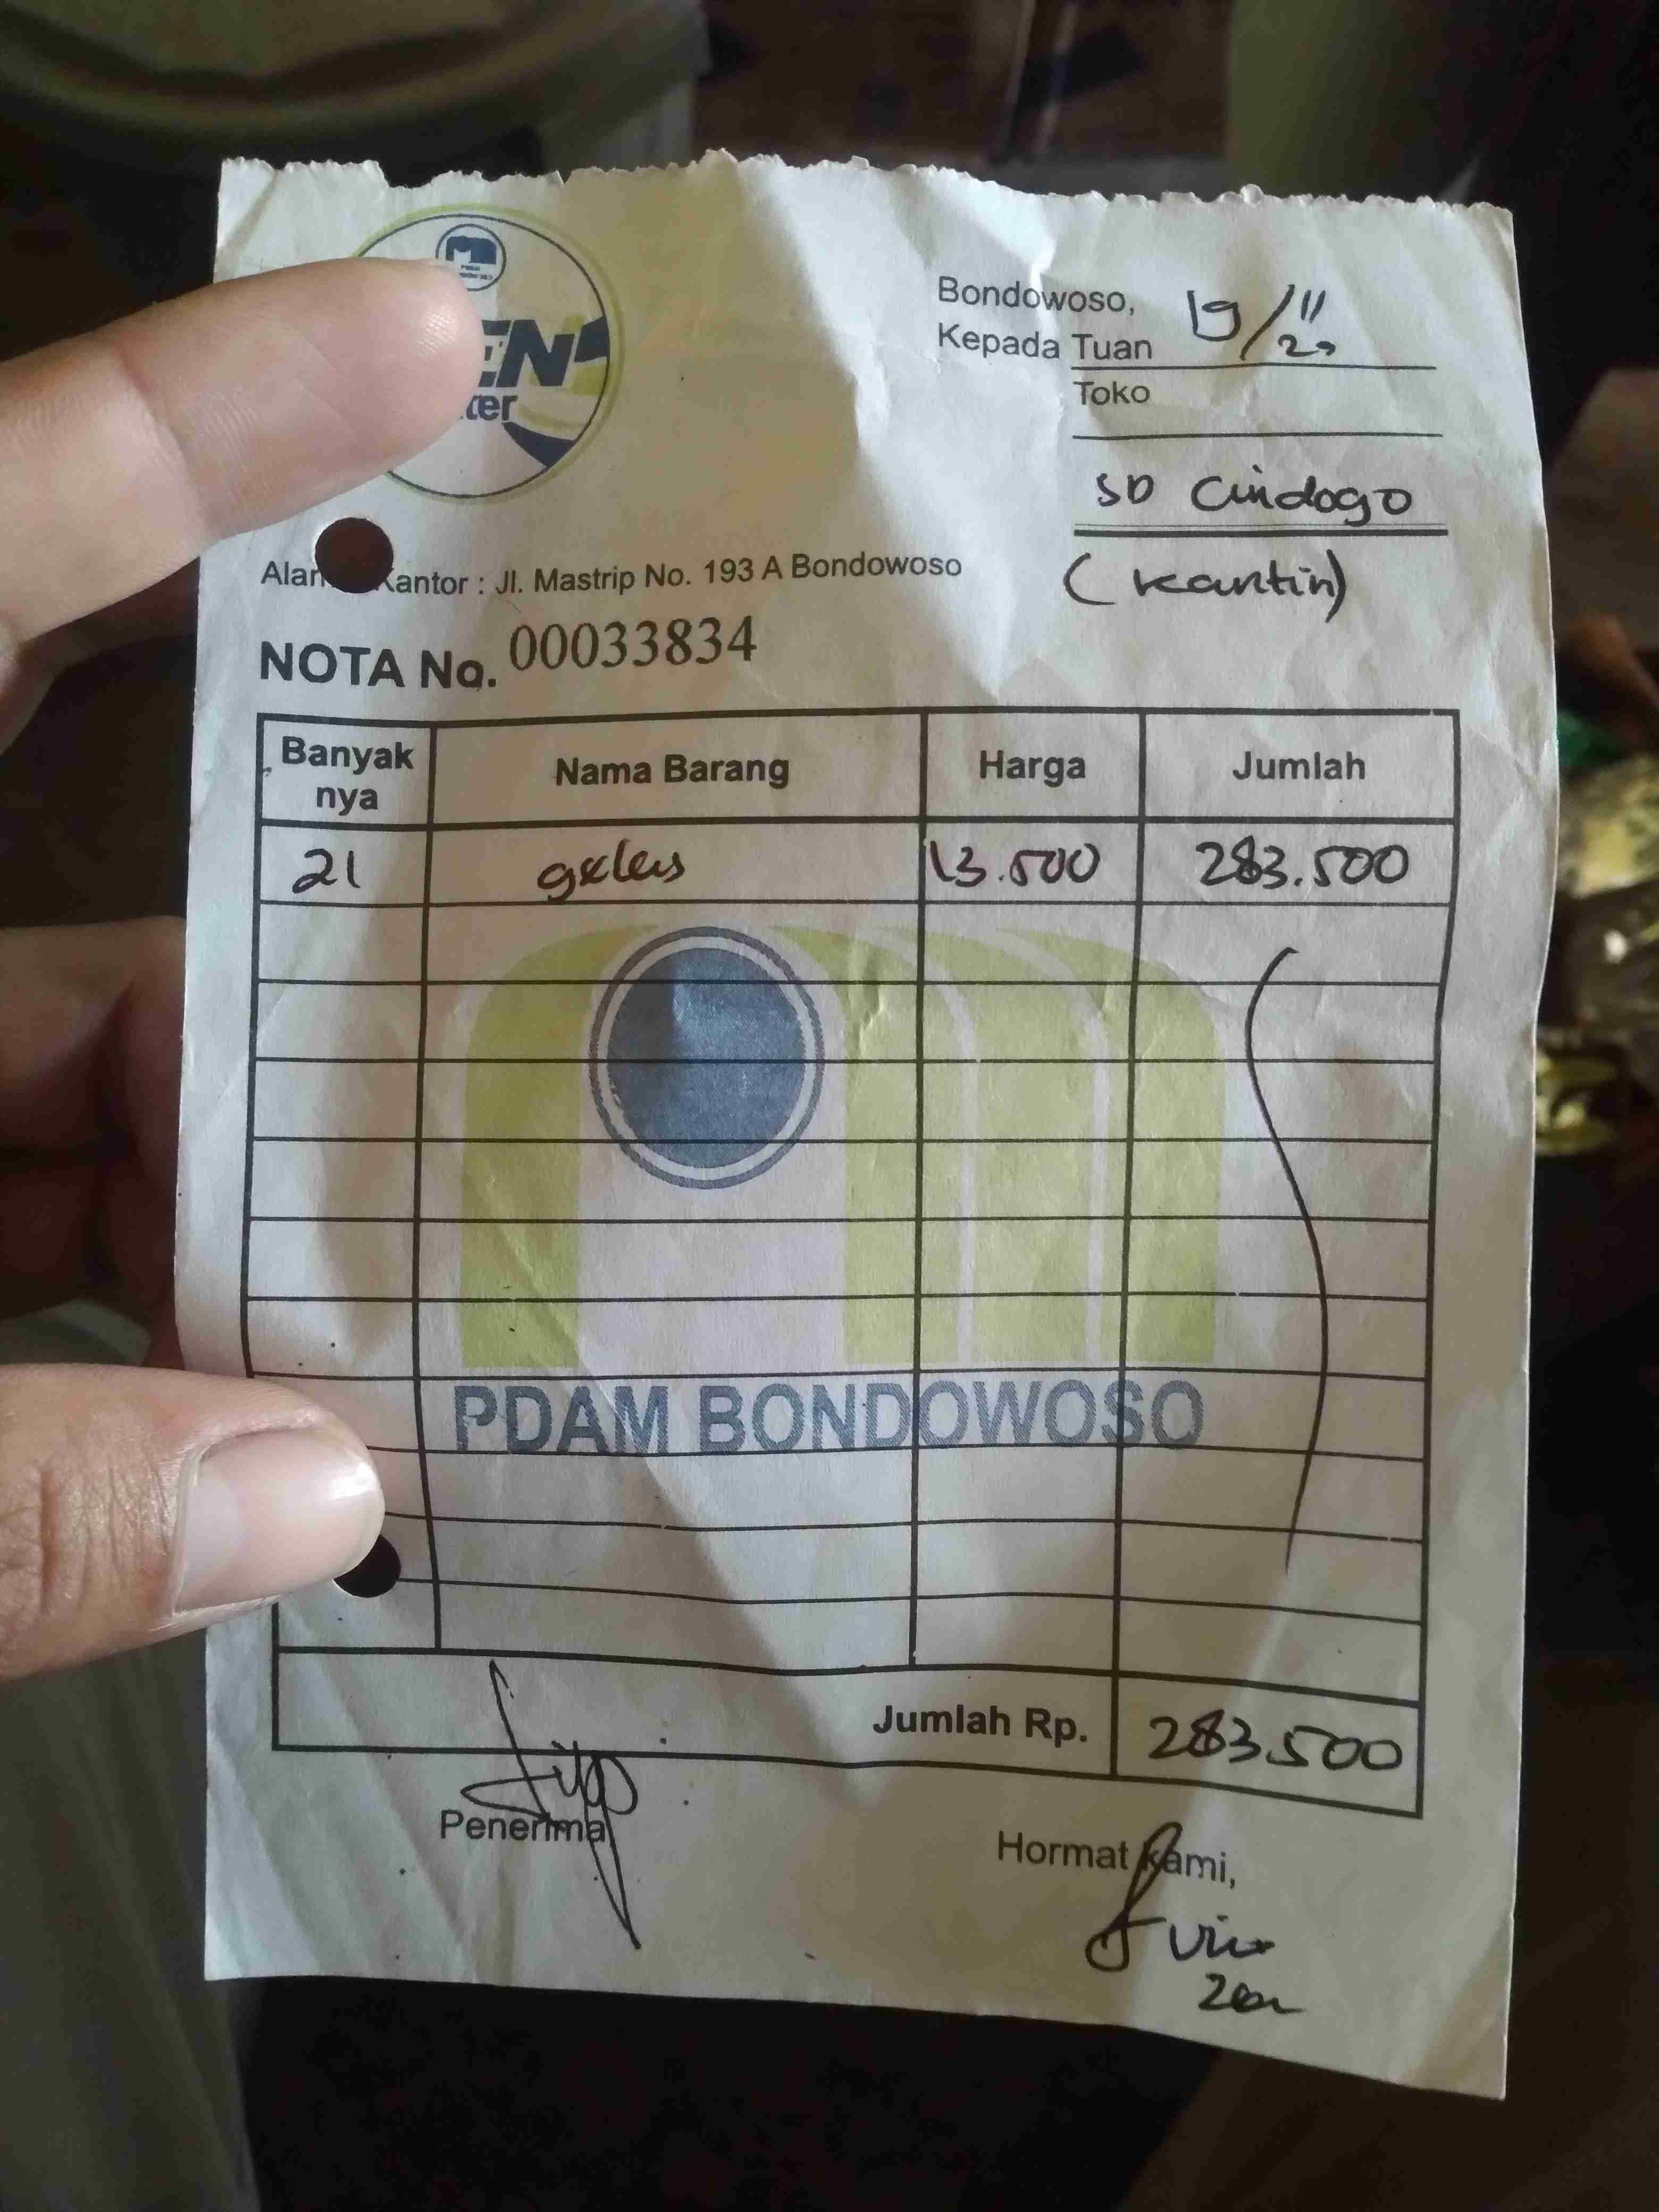 EN
ter
Bondowoso, 19/11
Kepada Tuan 20
Toko
SD Cindogo
(kantin)
Alam Kantor : Jl. Mastrip No. 193 A Bondowoso
NOTA No. 00033834
Banyak nya Nama Barang Harga Jumlah
21 gelas 13.500 283.500
PDAM BONDOWOSO
Jumlah Rp. 283.500
Penerima
Hormat kami,